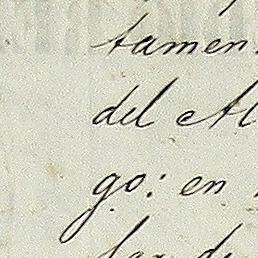 tamen
del Al
go: en